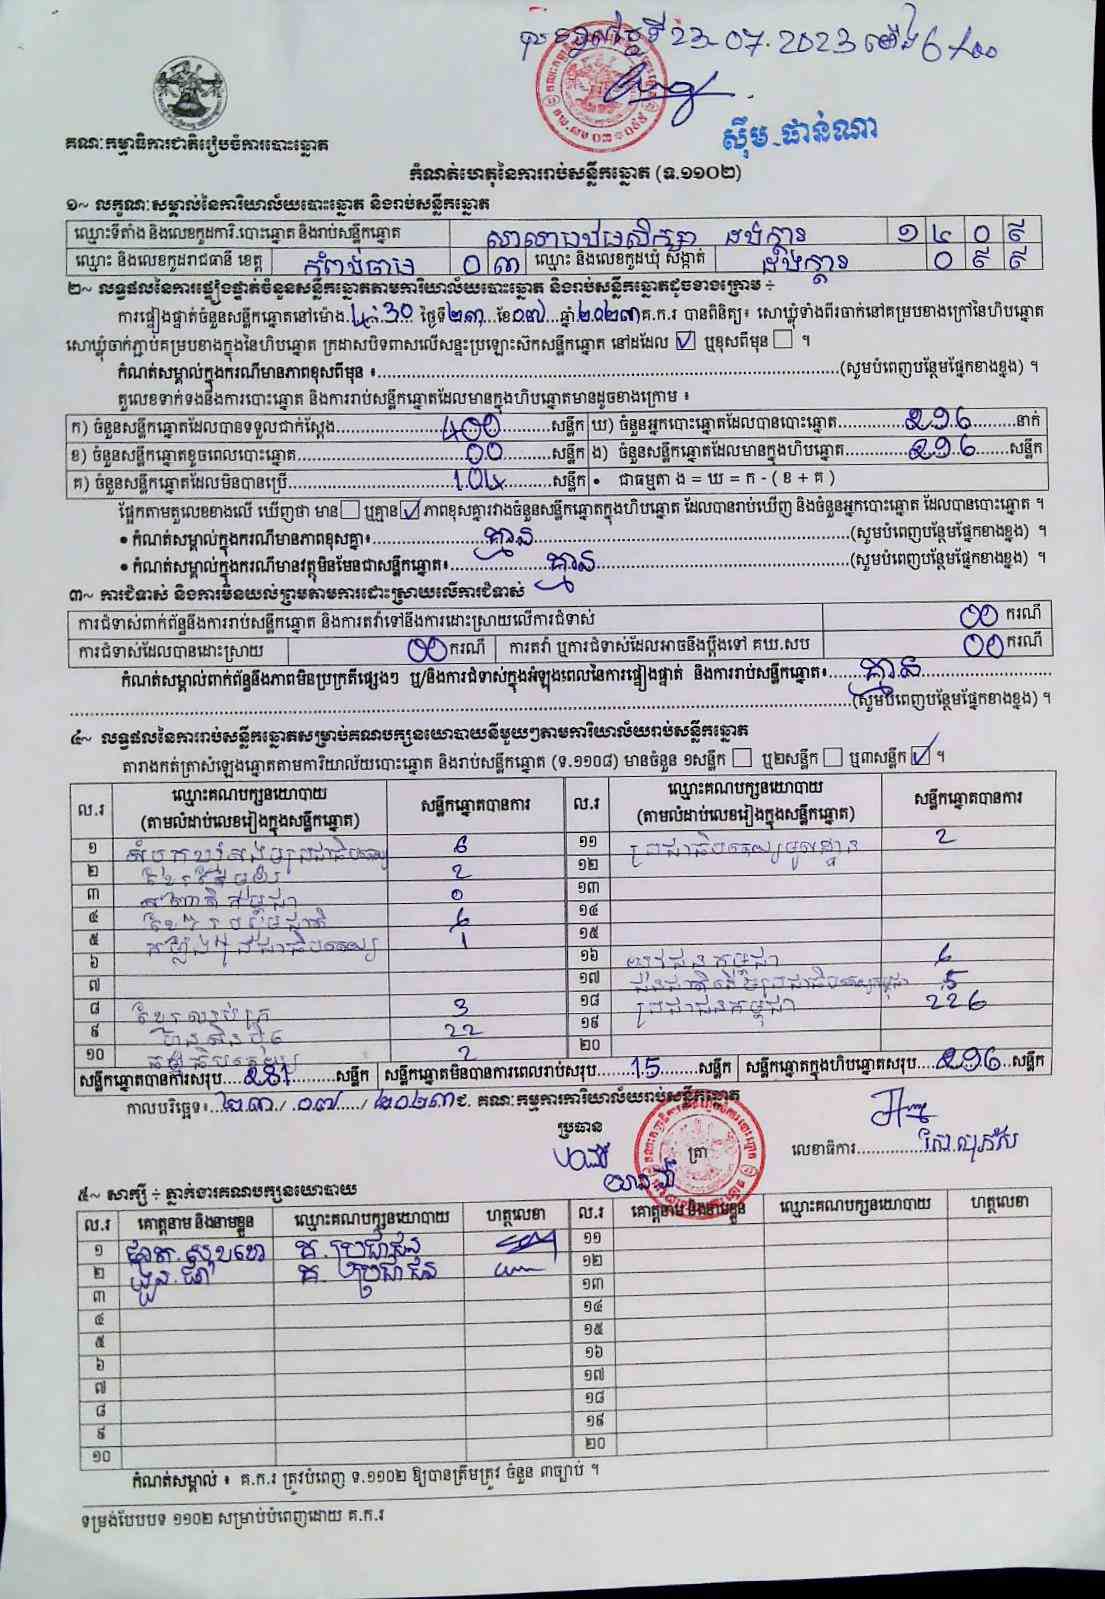 ថ្ងៃទី 23-07-2023 ម៉ោង
ស៊ឹម ផាន់ណា
គណៈកម្មាធិការជាតិរៀបចំការបោះឆ្នោត
កំណត់ហេតុនៃការរាប់សន្លឹកឆ្នោត (ទ.១១០២)
១~ លក្ខណៈសម្គាល់នៃការិយាល័យបោះឆ្នោត និងរាប់សន្លឹកឆ្នោត
ឈ្មោះទីតាំង និងលេខកូដការិ.បោះឆ្នោត និងរាប់សន្លឹកឆ្នោត សាលាបឋមសិក្សា ដង្តារ ១ ៤ ០ ៩
ឈ្មោះ និងលេខកូដរាជធានី ខេត្ត កំពង់ចាម ០ ៣ ឈ្មោះ និងលេខកូដឃុំ សង្កាត់ ០ ៩ ៩
២~ លទ្ធផលនៃការផ្ទៀងផ្ទាត់ចំនួនសន្លឹកឆ្នោតតាមការិយាល័យបោះឆ្នោត និងរាប់សន្លឹកឆ្នោតដូចខាងក្រោម ÷
ការផ្ទៀងផ្ទាត់ចំនួនសន្លឹកឆ្នោតនៅម៉ោង ៤:30 ថ្ងៃទី២៣ ខែ០៧ ឆ្នាំ២០២៣ គ.ក.រ បានពិនិត្យ៖ សោឃ្លុំទាំងពីរចាក់នៅគម្របខាងក្រៅនៃហិបឆ្នោត
សោឃ្លុំចាក់ភ្ជាប់គម្របខាងក្នុងនៃហិបឆ្នោត ក្រដាសបិទពាសលើសន្ទះប្រឡោះស៊កសន្លឹកឆ្នោត នៅដដែល ☑ ឬខុសពីមុន ☐ ។
កំណត់សម្គាល់ក្នុងករណីមានភាពខុសពីមុន ៖ (សូមបំពេញបន្ថែមផ្នែកខាងខ្នង) ។
តួលេខទាក់ទងនឹងការបោះឆ្នោត និងការរាប់សន្លឹកឆ្នោតដែលមានក្នុងហិបឆ្នោតមានដូចខាងក្រោម ៖
ក) ចំនួនសន្លឹកឆ្នោតដែលបានទទួលជាក់ស្តែង 400 សន្លឹក ឃ) ចំនួនអ្នកបោះឆ្នោតដែលបានបោះឆ្នោត ២៩៦ នាក់
ខ) ចំនួនសន្លឹកឆ្នោតខូចពេលបោះឆ្នោត 00 សន្លឹក ង) ចំនួនសន្លឹកឆ្នោតដែលមានក្នុងហិបឆ្នោត ២៩៦ សន្លឹក
គ) ចំនួនសន្លឹកឆ្នោតដែលមិនបានប្រើ 104 សន្លឹក • ជាធម្មតា ង = ឃ = ក - ( ខ + គ )
ផ្អែកតាមតួលេខខាងលើ ឃើញថា មាន ☐ ឬគ្មាន ☑ ភាពខុសគ្នារវាងចំនួនសន្លឹកឆ្នោតក្នុងហិបឆ្នោត ដែលបានរាប់ឃើញ និងចំនួនអ្នកបោះឆ្នោត ដែលបានបោះឆ្នោត ។
• កំណត់សម្គាល់ក្នុងករណីមានភាពខុសគ្នា៖ គ្មាន (សូមបំពេញបន្ថែមផ្នែកខាងខ្នង) ។
• កំណត់សម្គាល់ក្នុងករណីមានវត្ថុមិនមែនជាសន្លឹកឆ្នោត៖ គ្មាន (សូមបំពេញបន្ថែមផ្នែកខាងខ្នង) ។
៣~ ការជំទាស់ និងការមិនយល់ព្រមតាមការដោះស្រាយលើការជំទាស់
ការជំទាស់ពាក់ព័ន្ធនឹងការរាប់សន្លឹកឆ្នោត និងការតវ៉ាទៅនឹងការដោះស្រាយលើការជំទាស់ 00 ករណី
ការជំទាស់ដែលបានដោះស្រាយ 00 ករណី ការតវ៉ា ឬការជំទាស់ដែលអាចនឹងប្តឹងទៅ គឃ.សប 00 ករណី
កំណត់សម្គាល់ពាក់ព័ន្ធនឹងភាពមិនប្រក្រតីផ្សេងៗ ឬ/និងការជំទាស់ក្នុងអំឡុងពេលនៃការផ្ទៀងផ្ទាត់ និងការរាប់សន្លឹកឆ្នោត៖ គ្មាន
(សូមបំពេញបន្ថែមផ្នែកខាងខ្នង) ។
៤~ លទ្ធផលនៃការរាប់សន្លឹកឆ្នោតសម្រាប់គណបក្សនយោបាយនីមួយៗតាមការិយាល័យរាប់សន្លឹកឆ្នោត
តារាងកត់ត្រាសំឡេងឆ្នោតតាមការិយាល័យបោះឆ្នោត និងរាប់សន្លឹកឆ្នោត (ទ.១១០៨) មានចំនួន ១សន្លឹក ☐ ឬ២សន្លឹក ☐ ឬ៣សន្លឹក ☑ ។
ល.រ ឈ្មោះគណបក្សនយោបាយ (តាមលំដាប់លេខរៀងក្នុងសន្លឹកឆ្នោត) សន្លឹកឆ្នោតបានការ ល.រ ឈ្មោះគណបក្សនយោបាយ (តាមលំដាប់លេខរៀងក្នុងសន្លឹកឆ្នោត) សន្លឹកឆ្នោតបានការ
១ 6 ១១ ប្រជាធិបតេយ្យមូលដ្ឋាន 2
២ 2 ១២
៣ 0 ១៣
៤ ខ្មែររួបរួមជាតិ 6 ១៤
៥ កម្លាំងប្រជាធិបតេយ្យ 1 ១៥
៦ ១៦ យុវជនកម្ពុជា 6
៧ ១៧ 5
៨ 3 ១៨ ប្រជាជនកម្ពុជា 226
៩ ហ៊្វុនស៊ិនប៉ិច 22 ១៩
១០ ធម្មាធិបតេយ្យ 2 ២០
សន្លឹកឆ្នោតបានការសរុប 281 សន្លឹក សន្លឹកឆ្នោតមិនបានការពេលរាប់សរុប 15 សន្លឹក សន្លឹកឆ្នោតក្នុងហិបឆ្នោតសរុប ២៩៦ សន្លឹក
កាលបរិច្ឆេទ៖ ២៣/០៧/២០២៣ គណៈកម្មការការិយាល័យរាប់សន្លឹកឆ្នោត
ប្រធាន ត្រា លេខាធិការ
៥~ សាក្សី ÷ ភ្នាក់ងារគណបក្សនយោបាយ
ល.រ គោត្តនាម និងនាមខ្លួន ឈ្មោះគណបក្សនយោបាយ ហត្ថលេខា ល.រ គោត្តនាម និងនាមខ្លួន ឈ្មោះគណបក្សនយោបាយ ហត្ថលេខា
១ គ.ប្រជាជន ១១
២ គ.ប្រជាជន ១២
៣ ១៣
៤ ១៤
៥ ១៥
៦ ១៦
៧ ១៧
៨ ១៨
៩ ១៩
១០ ២០
កំណត់សម្គាល់ ៖ គ.ក.រ ត្រូវបំពេញ ទ.១១០២ ឱ្យបានត្រឹមត្រូវ ចំនួន ៣ច្បាប់ ។
ទម្រង់បែបបទ ១១០២ សម្រាប់បំពេញដោយ គ.ក.រ